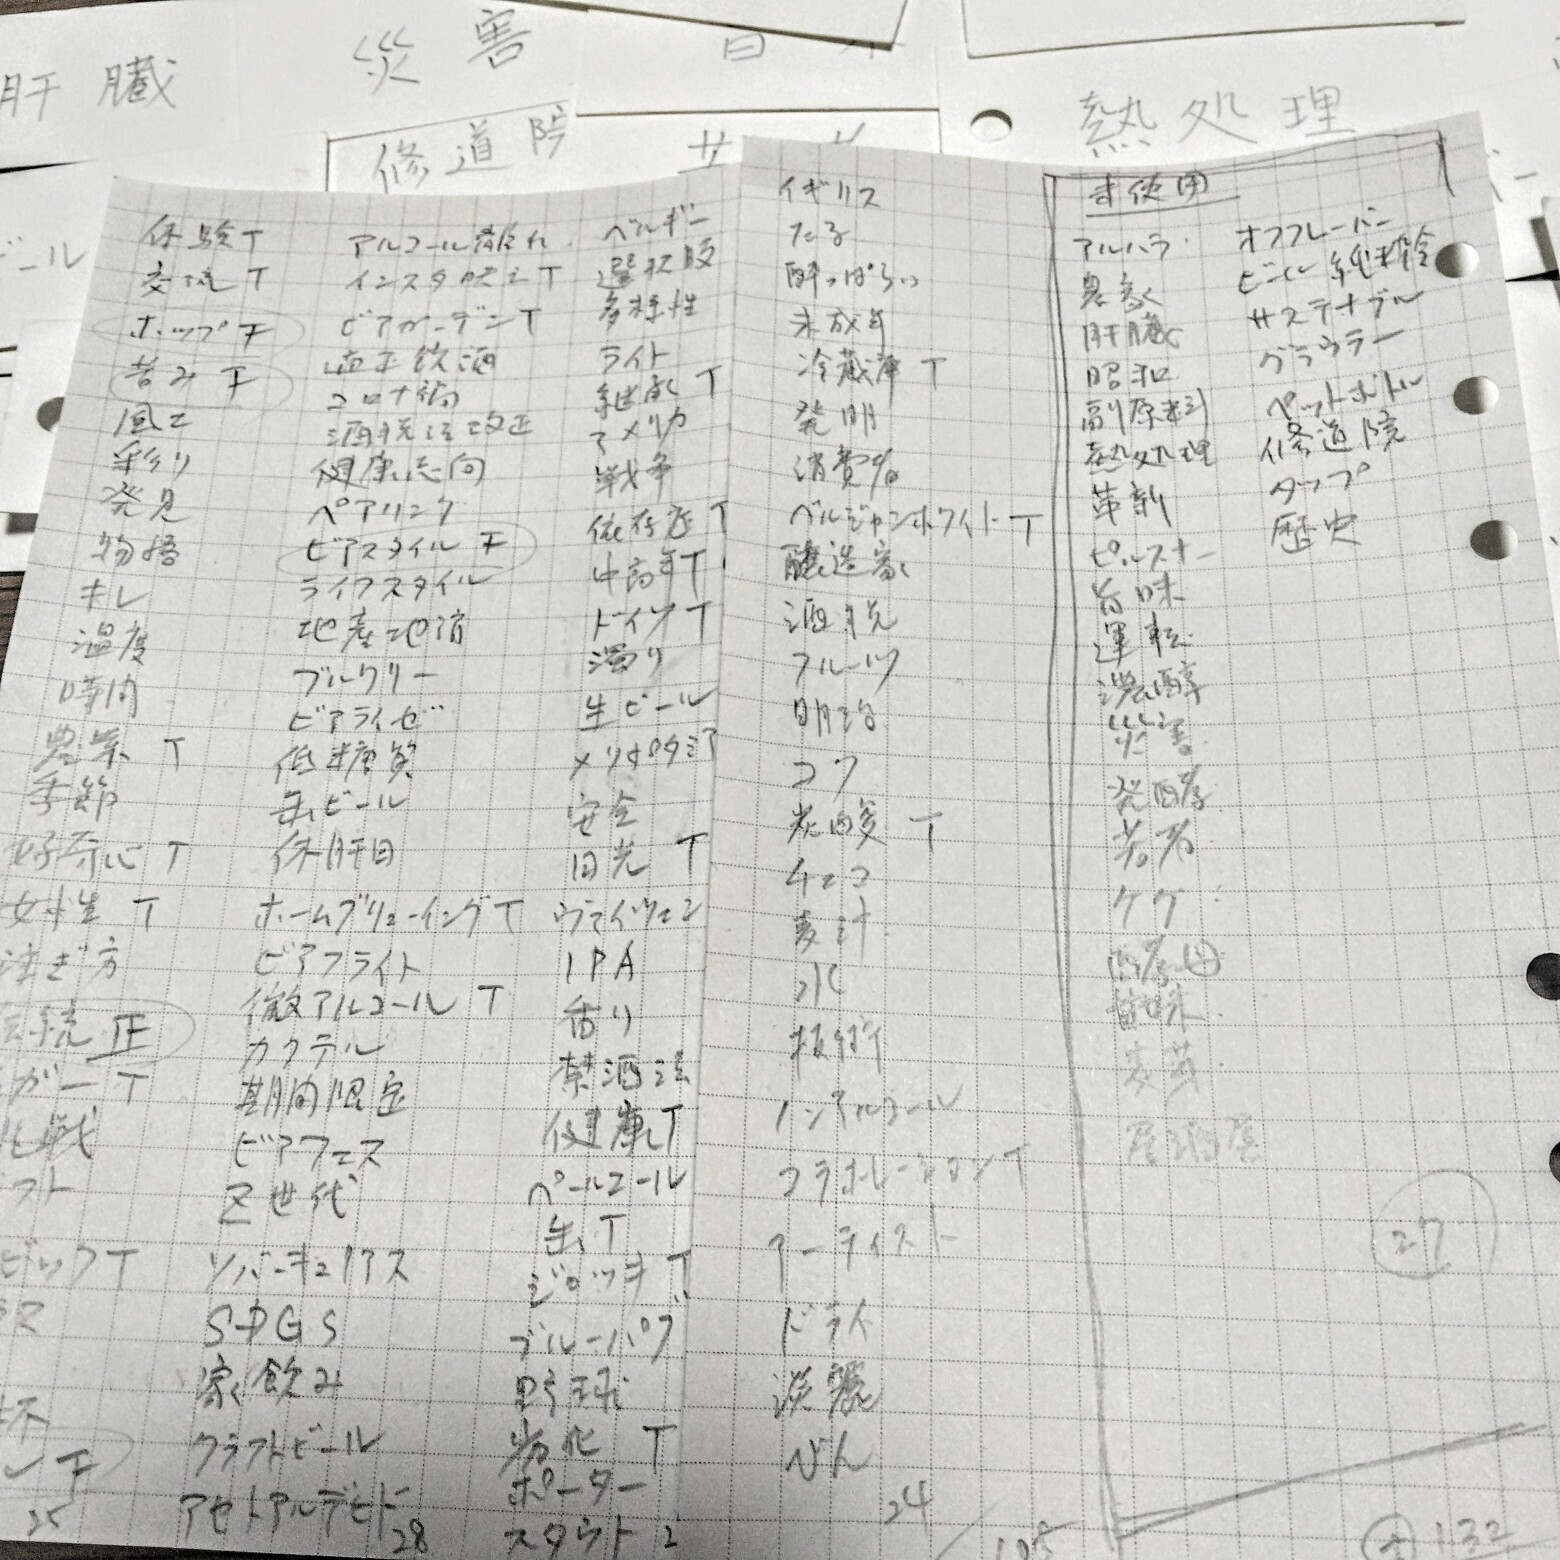 肝臓
災害
修道院
熱処理
ビール
体験 T
交流 T
ホップ 下
苦み 下
風土
彩り
発見
物語
キレ
温度
時間
農業 T
季節
好奇心 T
女性 T
注ぎ方
伝統 正
ガー T
挑戦
フト
ビック T
杯
25
アルコール離れ
インスタ映え T
ビアガーデン T
適正飲酒
コロナ禍
酒税法改正
健康志向
ペアリング
ビアスタイル 下
ライフスタイル
地産地消
ブルワリー
ビアライゼ
低糖質
缶ビール
休肝日
ホームブリューイング T
ビアフライト
微アルコール T
カクテル
期間限定
ビアフェス
Z世代
ソバーキュリアス
SDGS
家飲み
クラフトビール
アセトアルデヒド
28
ベルギー
選択肢
多様性
ライト
継承 T
アメリカ
戦争
依存症 T
中高年 T
ドイツ T
濁り
生ビール
メソポタミア
安全
日光 T
ヴァイツェン
IPA
香り
禁酒法
健康 T
ペールエール
缶 T
ジョッキ T
ブルーパブ
野球
劣化 T
ポーター
スタウト
イギリス
たる
酔っぱらい
未成年
冷蔵庫 T
発明
消費者
ベルジャンホワイト T
醸造家
酒税
フルーツ
明治
コク
炭酸 T
チェコ
麦汁
水
技術
ノンアルコール
コラボレーション T
アーティスト
ドライ
淡麗
びん
24
105
未使用
アルハラ
農家
肝臓
昭和
副原料
熱処理
革新
ピルスナー
旨味
運転
濃醇
災害
発酵
若者
ケグ
酵母
甘味
麦芽
居酒屋
オフフレーバー
ビール純粋令
サステナブル
グラウラー
ペットボトル
修道院
タップ
歴史
27
全 132